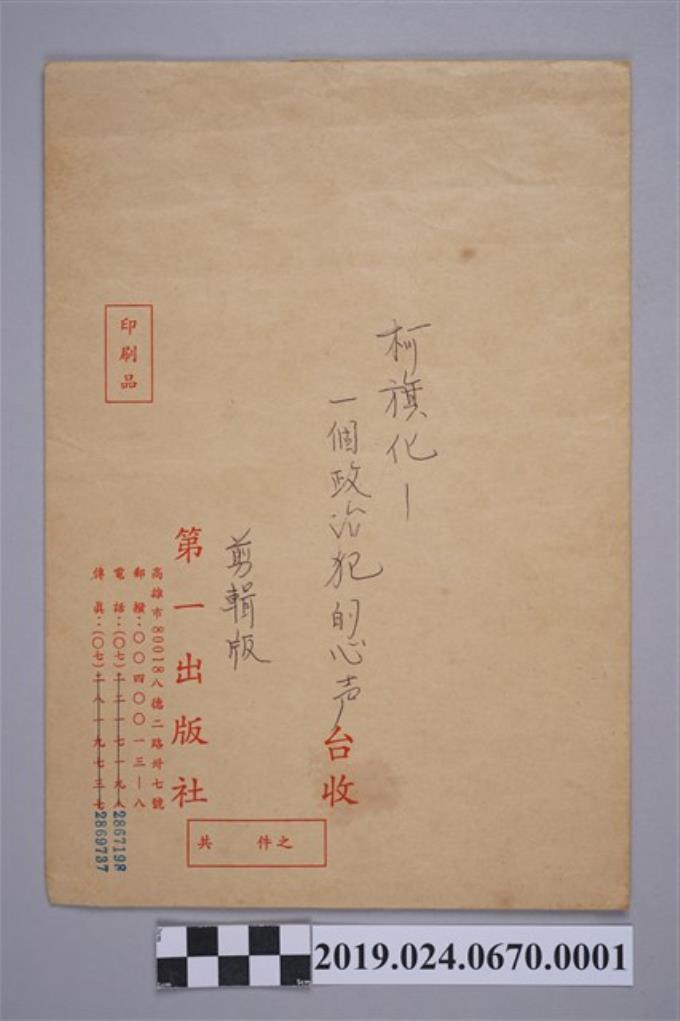 柯旗化—
一個政治犯的心声
台收
剪輯版
印刷品
第一出版社
高雄市80018八德二路卅七號
郵撥：〇〇四〇〇一三—八
電話：(〇七)二二一七一九八
2867198
傳真：(〇七)二八一九七三七
2869737
共 件之
2019.024.0670.0001